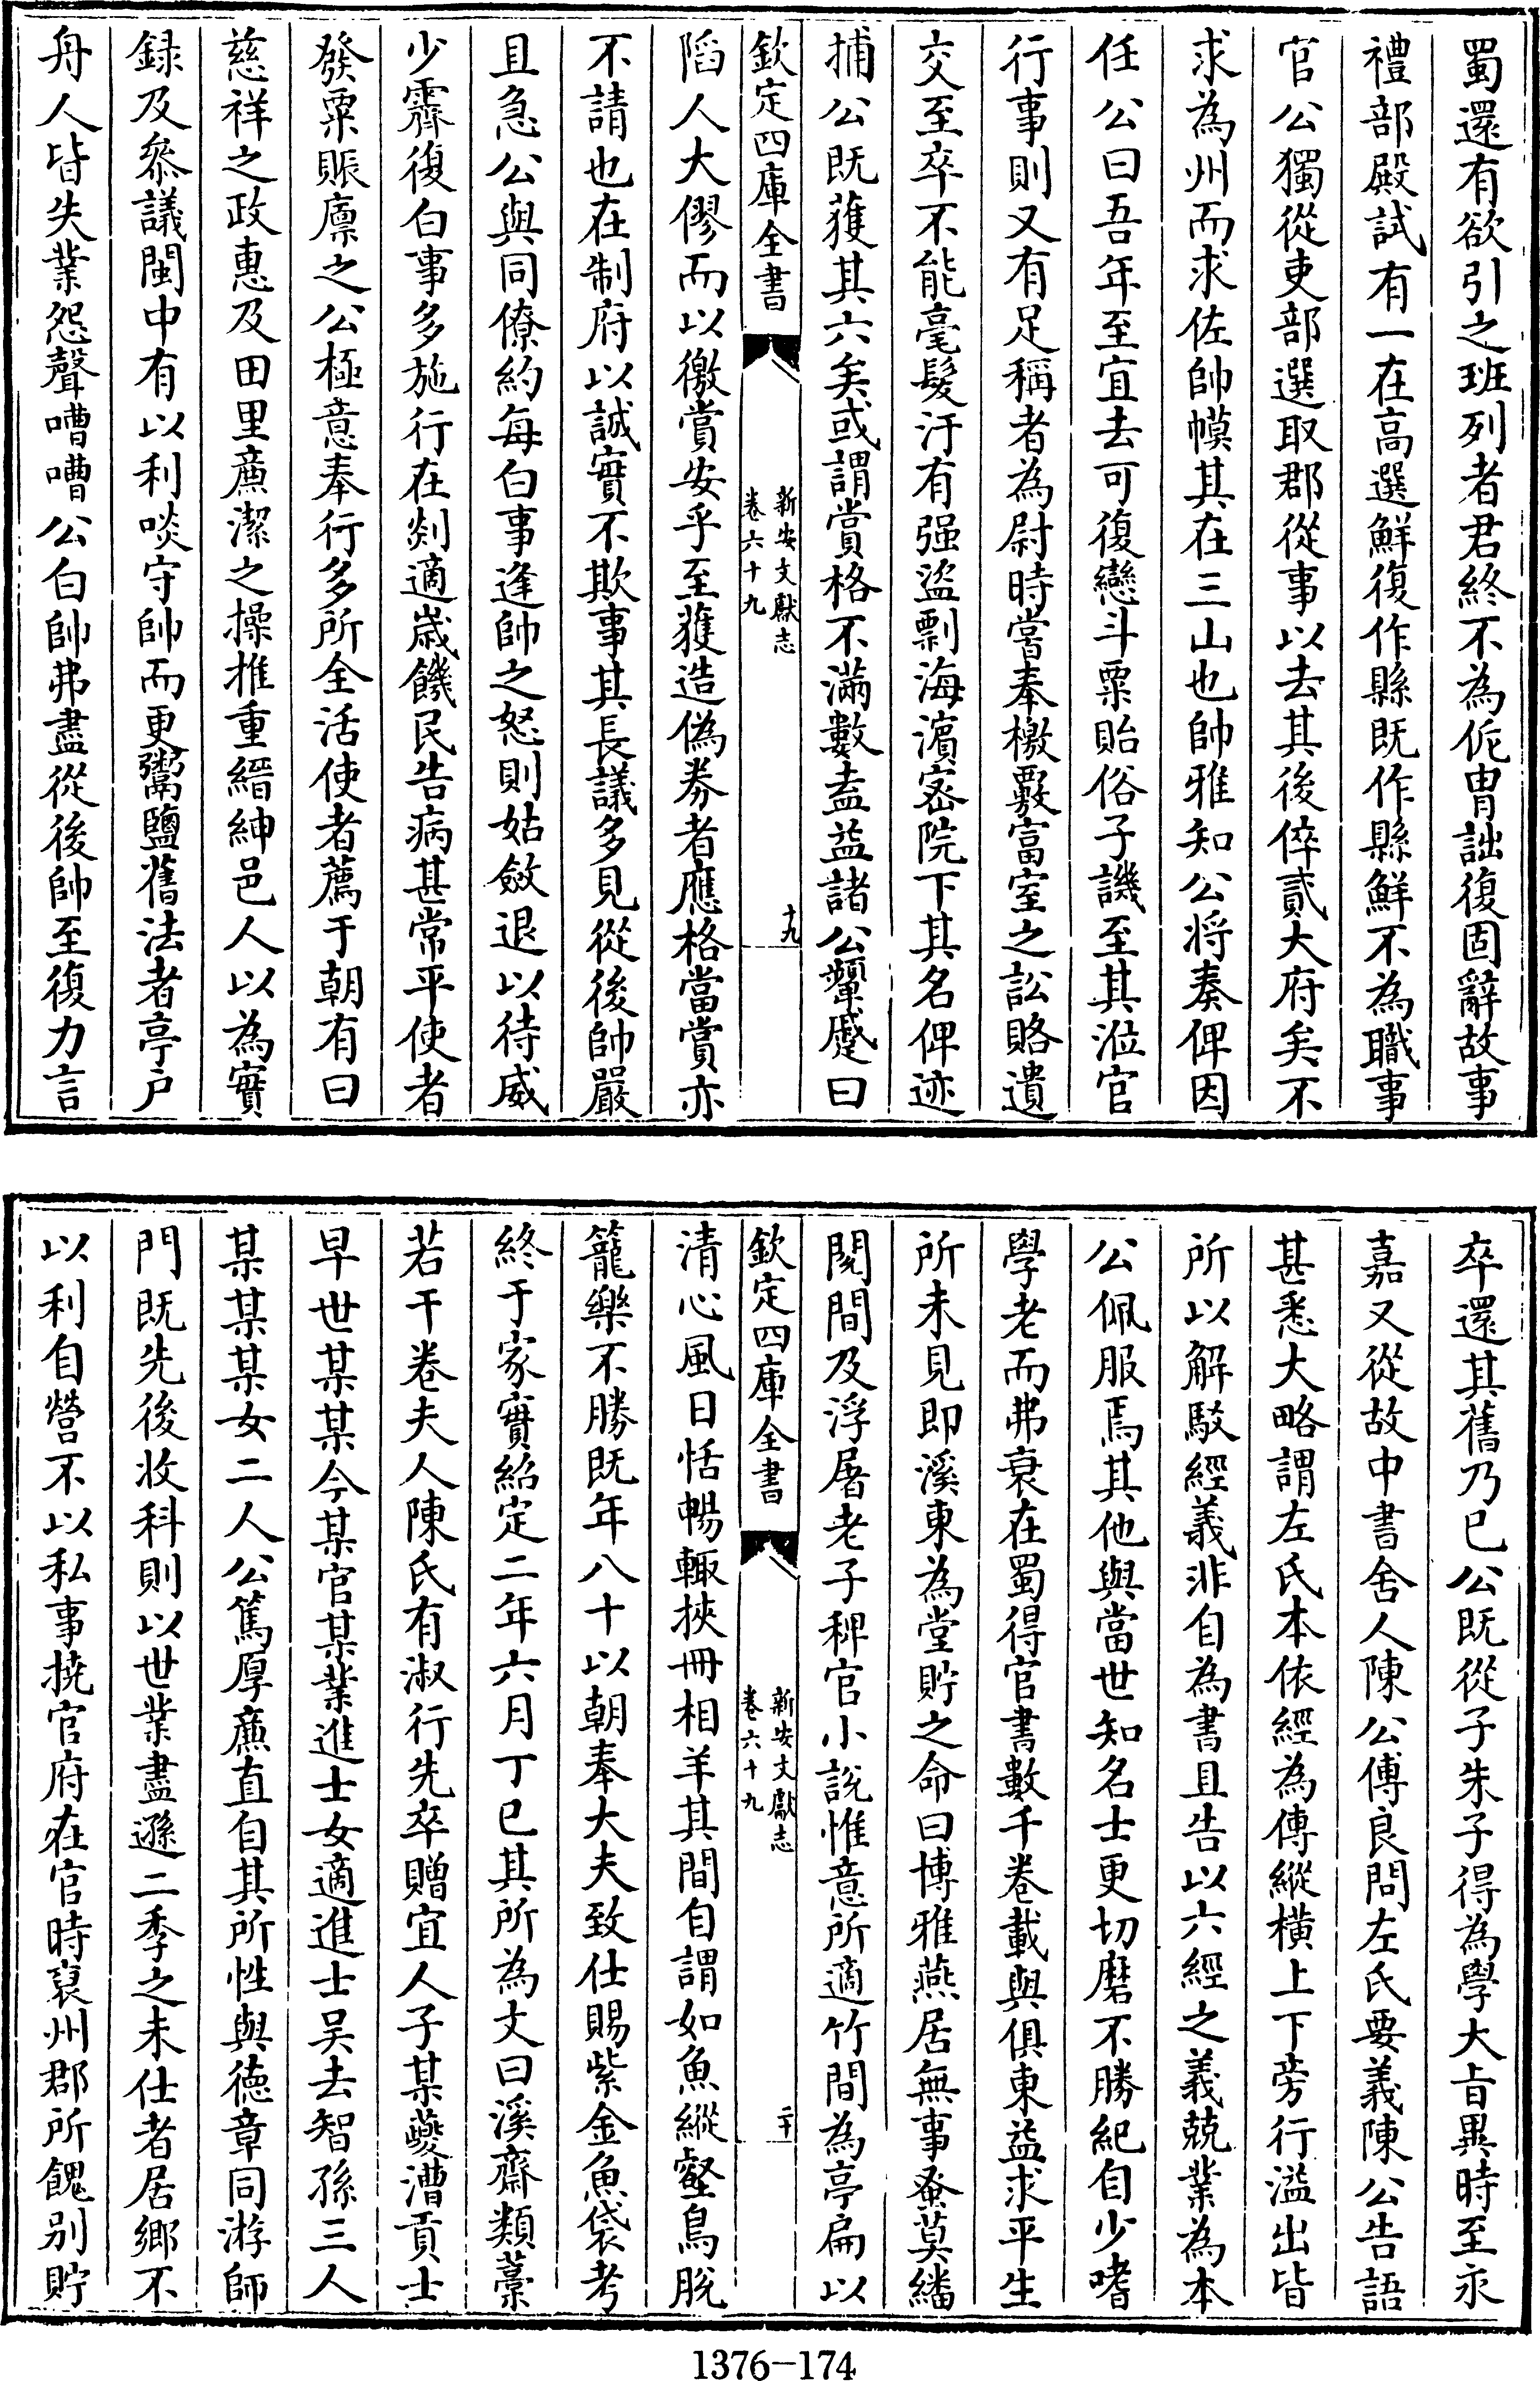 蜀還有欲引之班列者君終不為伲冑詘復固辭故事
禮部殿試有一在高選鮮復作縣既作縣鮮不為職事
官公獨從吏部選取郡從事以去其後倅貳大府矣不
求為州而求佐帥幙其在三山也帥雅知公將奏俾因
任公曰吾年至宜去可復戀斗粟貽俗子譏至其涖官
行事則又有足稱者為尉時嘗奉檄覈富室之訟賂遺
交至卒不能毫髮汙有强盜剽海濵宻院下其名俾迹
捕公既獲其六矣或謂賞格不滿數盍益諸公顰蹙曰
欽定四庫全書
新安文獻志
卷六十九
十九
陷人大僇而以徼賞安乎至獲造偽券者應格當賞亦
不請也在制府以誠實不欺事其長議多見從後帥嚴
且急公與同僚約每白事逢帥之怒則姑斂退以待威
少霽復白事多施行在剡適歲饑民告病甚常平使者
發粟賑廪之公極意奉行多所全活使者薦于朝有曰
慈祥之政惠及田里亷潔之操推重縉紳邑人以為實
録及叅議閩中有以利啖守帥而更鬻鹽舊法者亭户
舟人皆失業怨聲嘈嘈公白帥弗盡從後帥至復力言
卒還其舊乃已公既從子朱子得為學大旨異時至永
嘉又從故中書舍人陳公傅良問左氏要義陳公告語
甚悉大略謂左氏本依經為傳縱横上下旁行溢出皆
所以解駁經義非自為書且告以六經之義兢業為本
公佩服焉其他與當世知名士更切磨不勝紀自少嗜
學老而弗衰在蜀得官書數千巻載與俱東益求平生
所未見即溪東為堂貯之命曰博雅燕居無事蚤莫繙
閱間及浮屠老子稗官小說惟意所適竹間為亭扁以
欽定四庫全書
新安文獻志
卷六十九
二十
清心風日恬暢輙挾冊相羊其間自謂如魚縱壑鳥脫
籠樂不勝既年八十以朝奉大夫致仕賜紫金魚袋考
終于家實紹定二年六月丁巳其所為文曰溪齋類藁
若干巻夫人陳氏有淑行先卒贈宜人子某夔漕貢士
早世某某今某官某業進士女適進士吴去智孫三人
某某某女二人公篤厚亷直自其所性與徳章同游師
門既先後收科則以世業盡遜二季之未仕者居鄉不
以利自營不以私事撓官府在官時裒州郡所餽别貯
1376-174